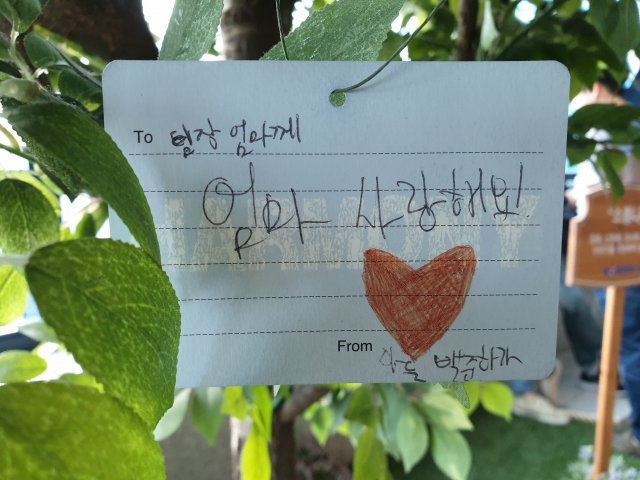 To 팀장 엄마께
엄마 사랑해요!
HARMONY
From 아들 박준하가